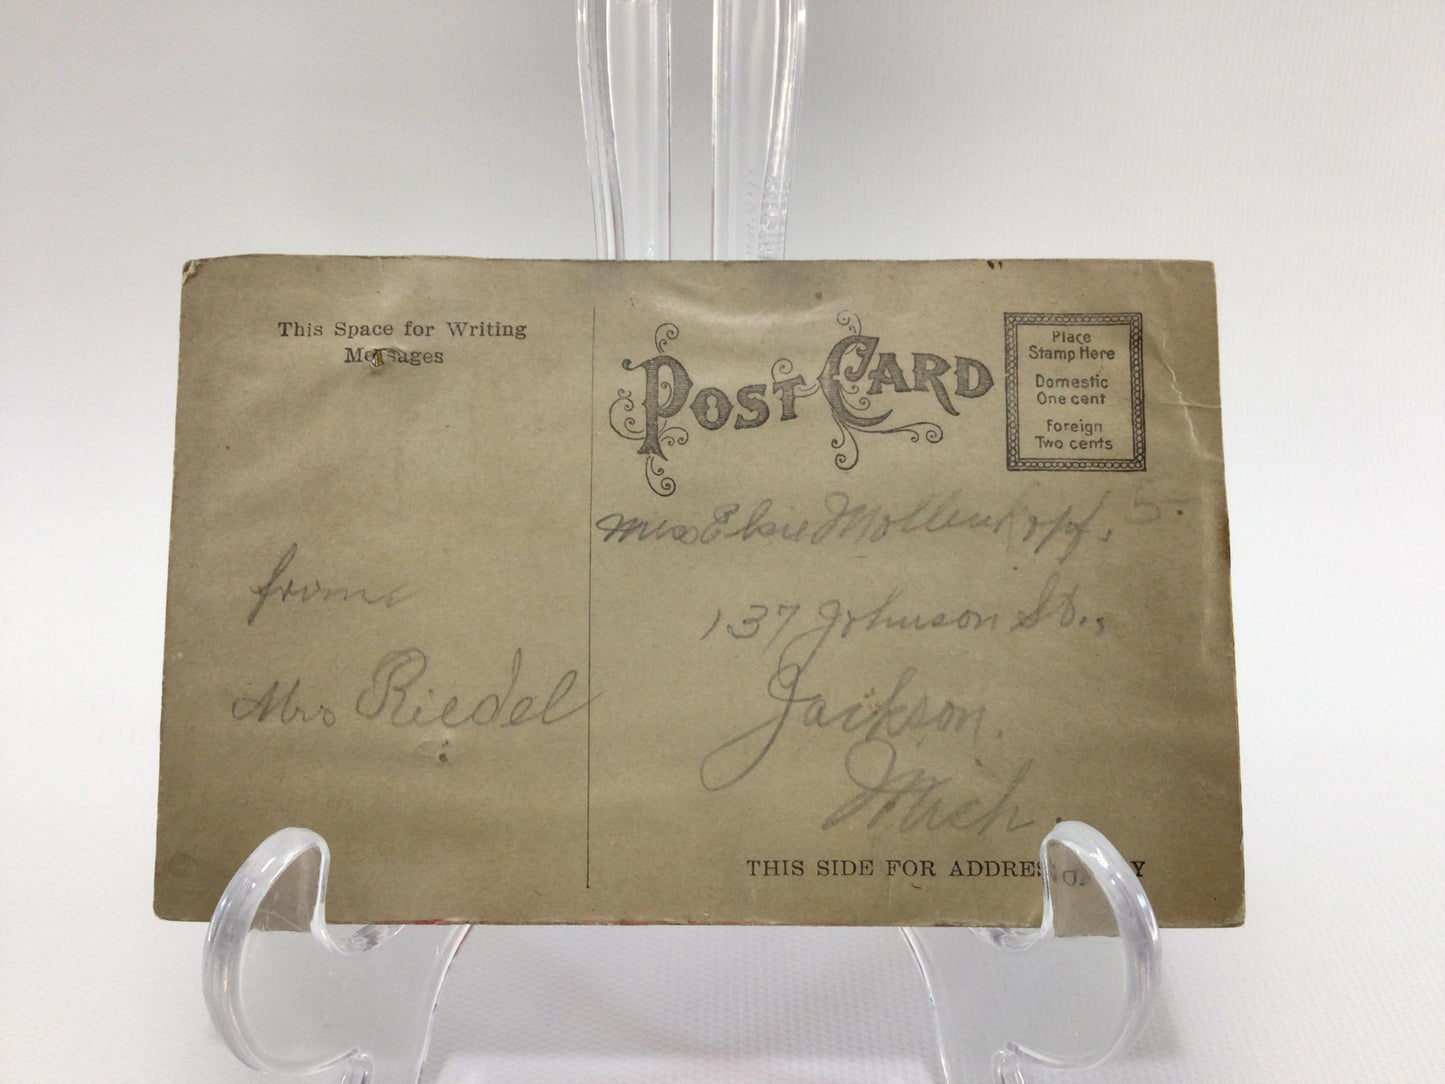 This Space for Writing
Messages
POST CARD
Place
Stamp Here
Domestic
One cent
Foreign
Two cents
5-
Miss Elsie Mollenkopf.
137 Johnson St.,
Jackson.
Mich.
from
Mrs Riedel
THIS SIDE FOR ADDRESS ONLY